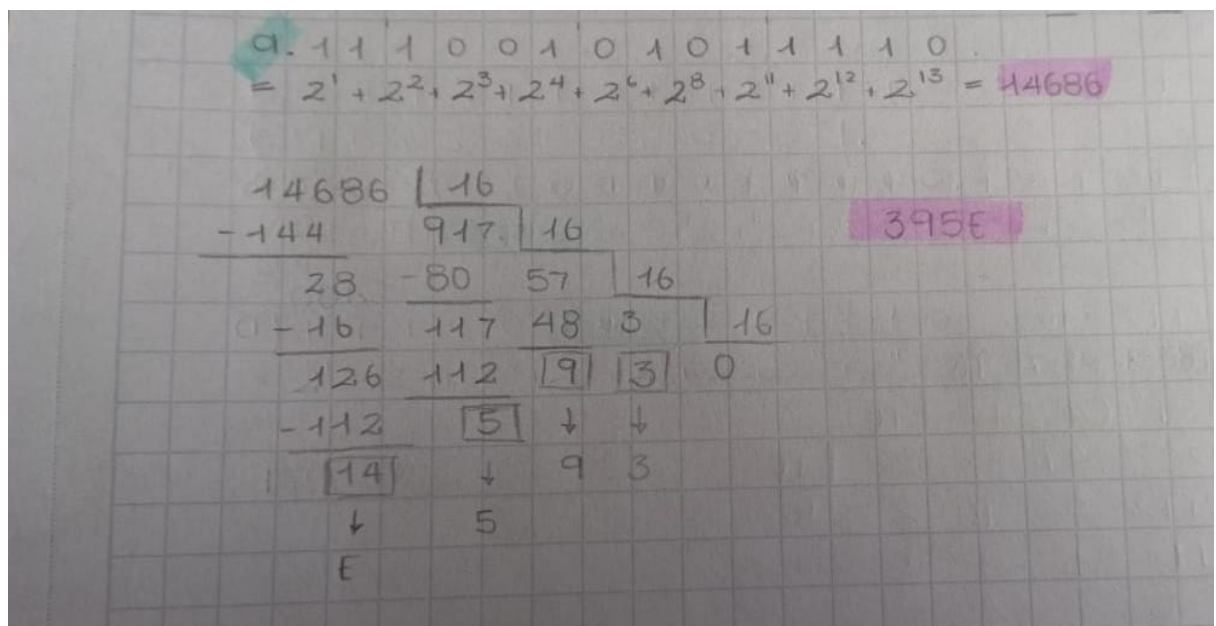 a. 1 1 1 0 0 1 0 1 0 1 1 1 1 0
= 2¹ + 2² + 2³ + 2⁴ + 2⁶ + 2⁸ + 2¹¹ + 2¹² + 2¹³ = 14686
14686 | 16
-144 917 | 16 395E
28 -80 57 | 16
-16 117 48 3 | 16
126 112 9 3 0
-112 5 ↓ ↓
14 ↓ 9 3
↓ 5
E